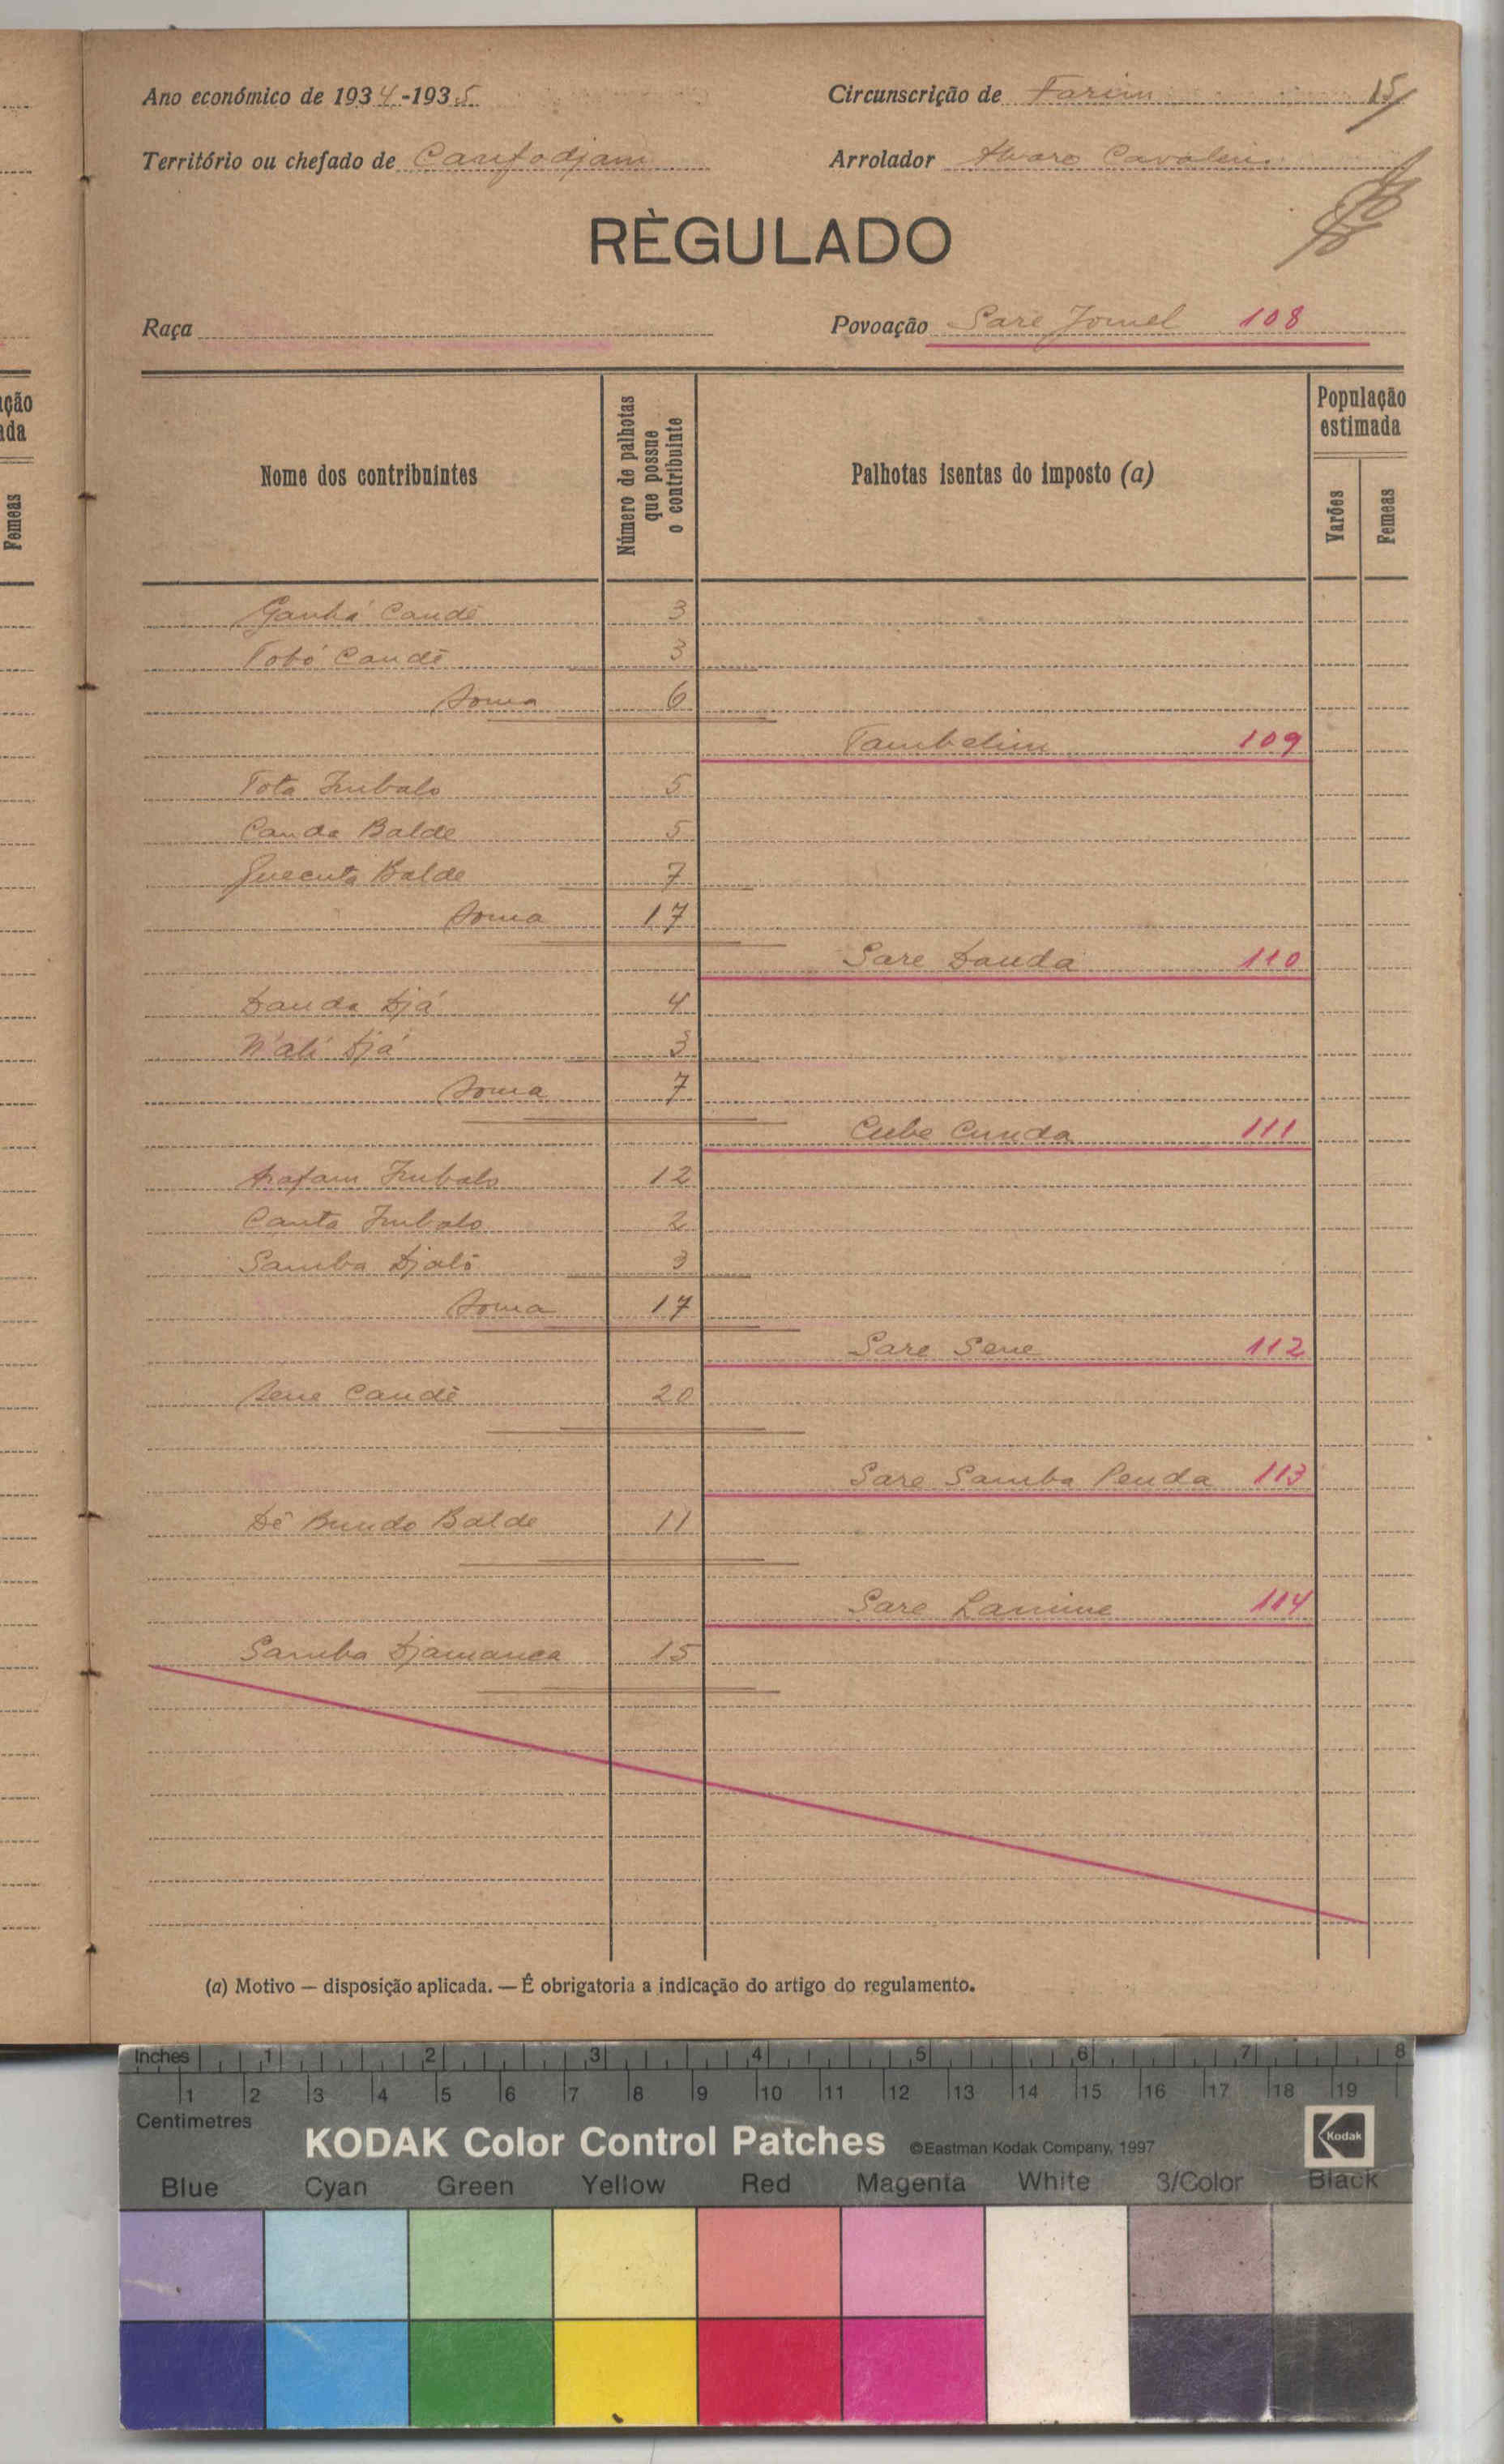 Ano económico de 1934-1935
Circunscrição de Farim 15
Território ou chefado de Canfodjam
Arrolador Alvaro
RÈGULADO
Raça
Povoação Sare Jomel 108
Nome dos contribuintes
Número de palhotas que possue o contribuinte
Palhotas isentas do imposto (a)
População estimada
Varões
Femeas
ção
ada
Femeas
Candê 3
Tobó Candê 3
Soma 6
Tambelim 109
Tota Imbalo 5
Canda Balde 5
Quecuta Balde 7
Soma 17
Sare Dauda 110
Dauda Djá 4
N'ali Djá 3
Soma 7
Cube Cunda 111
Arafam Imbalo 12
Canta Imbalo 2
Samba Djaló 3
Soma 17
Sare Sene 112
Sene Candê 20
Sare Samba Penda 113
Dê Bundo Balde 11
Sare Lamine 114
Samba Djamanca 15
(a) Motivo — disposição aplicada. — É obrigatoria a indicação do artigo do regulamento.
Inches 1 2 3 4 5 6 7 8
1 2 3 4 5 6 7 8 9 10 11 12 13 14 15 16 17 18 19
Centimetres
KODAK Color Control Patches ©Eastman Kodak Company, 1997 Kodak
Blue Cyan Green Yellow Red Magenta White 3/Color Black